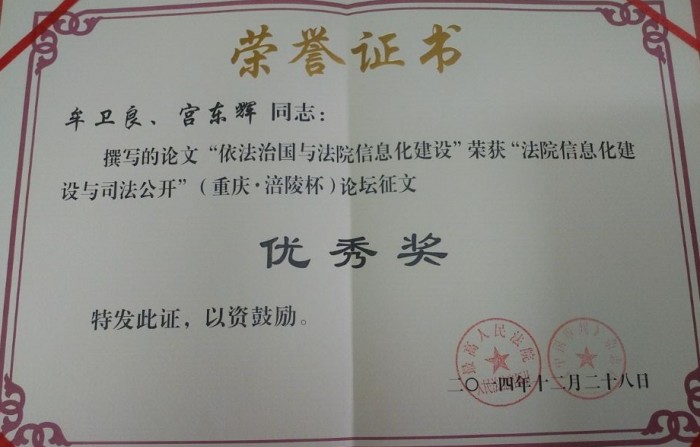 荣誉证书
牟卫良、宫东辉 同志：
撰写的论文“依法治国与法院信息化建设”荣获“法院信息化建
设与司法公开”（重庆·涪陵杯）论坛征文
优秀奖
特发此证，以资鼓励。
最高人民法院
二〇一四年十二月二十八日